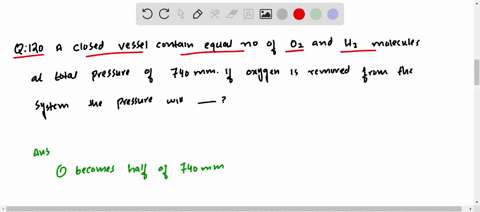 Q:120 A closed vessel contain equal no of O2 and H2 molecules
at total pressure of 740 mm. If oxygen is removed from the
system the pressure will __ ?
Ans
① becomes half of 740 mm